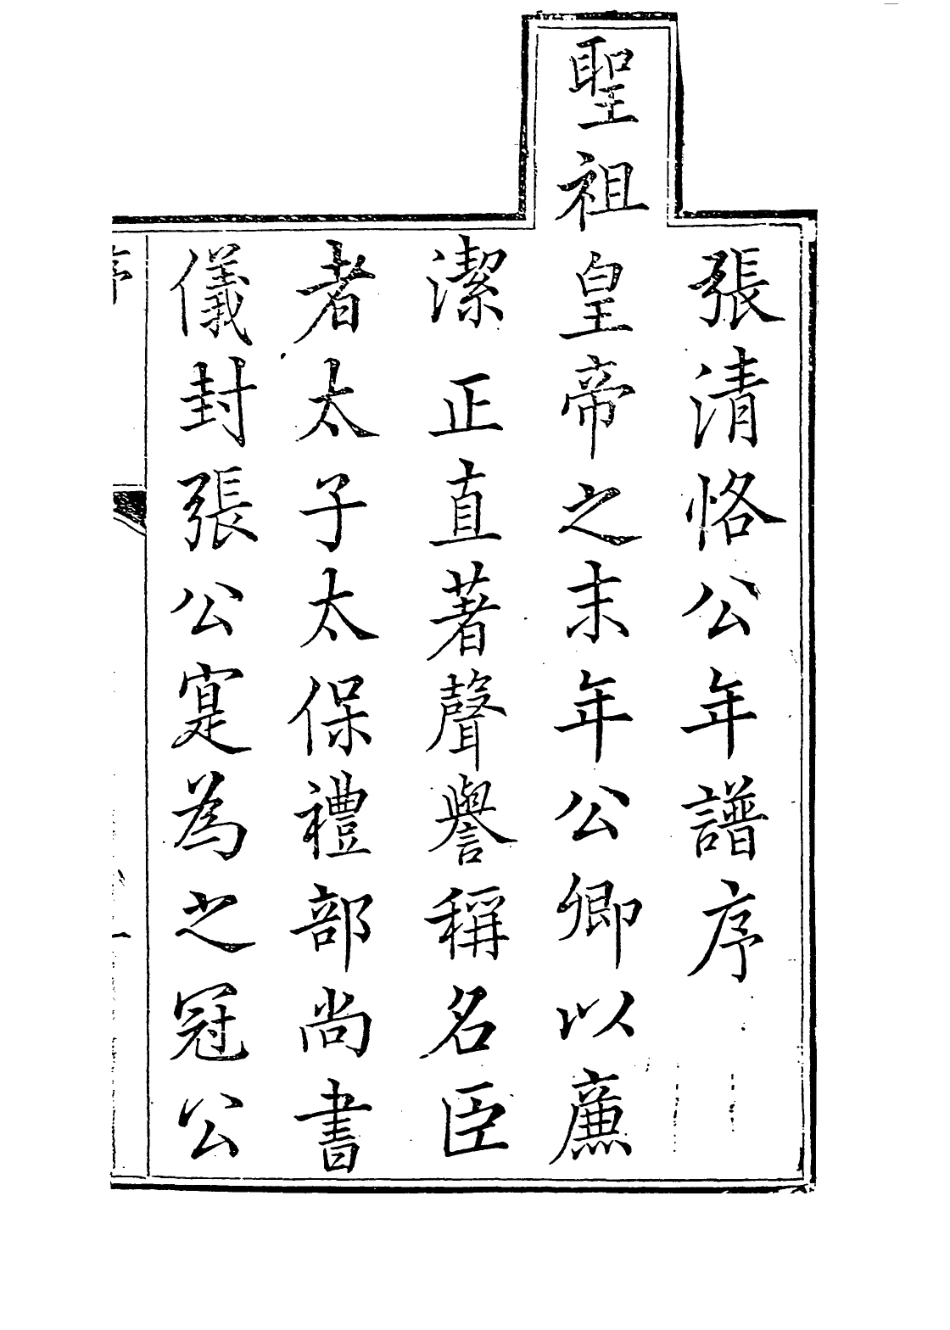 張清恪公年譜序
聖祖皇帝之末年公卿以廉
潔正直著聲譽稱名臣
者太子太保禮部尚書
儀封張公寔為之冠公
序
一